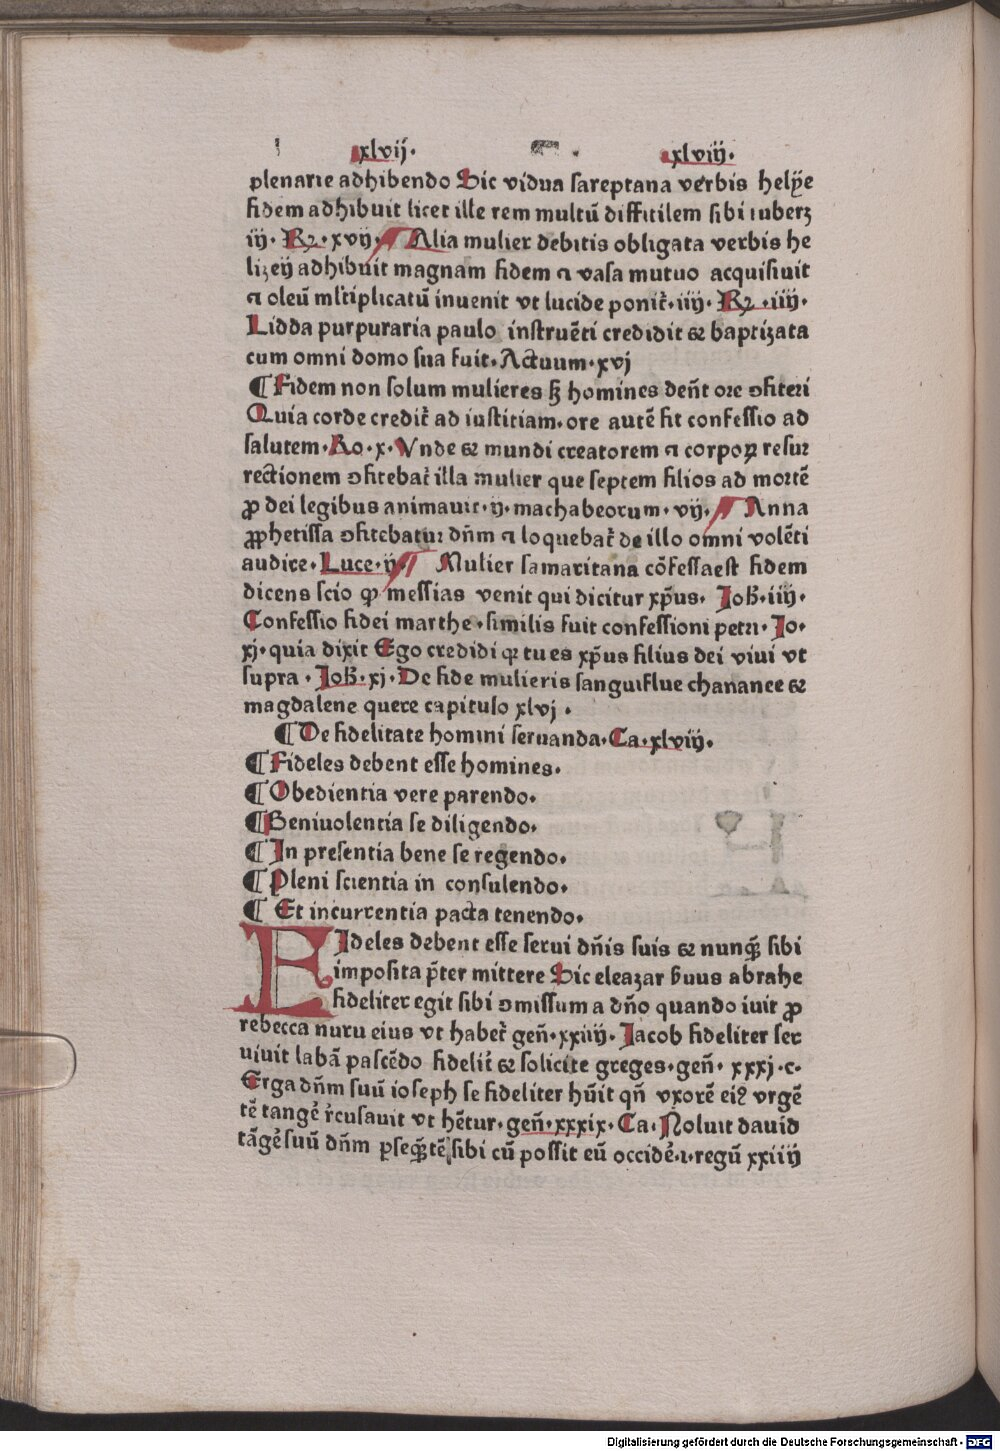 xlvij. xlviij.
plenarie adhibendo Sic vidua sareptana verbis helye
fidem adhibuit licet ille rem multū difficilem sibi iuberꝫ
iij. Rꝫ. xvij. ¶ Alia mulier debitis obligata verbis he
lizeij adhibuit magnam fidem ⁊ vasa mutuo acquisiuit
⁊ oleū ml̄tiplicatū inuenit vt lucide ponit̄. iiij. Rꝫ .iiij.
Lidda purpuraria paulo instruēti credidit ⁊ baptizata
cum omni domo sua fuit. Actuum. xvj
¶ Fidem non solum mulieres sꝫ homines den̄t ore ꝯfiteri
Quia corde credit̄ ad iustitiam. ore autē fit confessio ad
salutem. Ro. x. Vnde ⁊ mundi creatorem ⁊ corpoꝝ resur
rectionem ꝯfitebat̄ illa mulier que septem filios ad mortē
ꝓ dei legibus animauit. ij. machabeorum. vij. ¶ Anna
ꝓphetissa ꝯfitebatur dn̄m ⁊ loquebat̄ de illo omni volēti
audire. Luce. ij. ¶ Mulier samaritana cōfessaest fidem
dicens scio ꝙ messias venit qui dicitur xp̄us. Joh̄. iiij.
Confessio fidei marthe . similis fuit confessioni petri. Jo.
xj. quia dixit Ego credidi ꝙ tu es xp̄us filius dei viui vt
supra . Joh̄. xj. De fide mulieris sanguiflue chananee ⁊
magdalene quere capitulo xlvj .
¶ De fidelitate homini seruanda. Ca. xlviij.
¶ Fideles debent esse homines.
¶ Obedientia vere parendo.
¶ Beniuolentia se diligendo.
¶ In presentia bene se regendo.
¶ Pleni scientia in consulendo.
¶ Et incurrentia pacta tenendo.
FIdeles debent esse serui dn̄is suis ⁊ nunꝙ̄ sibi
imposita p̄ter mittere Sic eleazar s̄uus abrahe
fideliter egit sibi ꝯmissum a dn̄o quando iuit ꝓ
rebecca nuru eius vt habet̄ gen̄. xxiiij. Jacob fideliter ser
uiuit labā pascēdo fidelit̄ ⁊ solicite greges. gen̄. xxxj. c.
Erga dn̄m suū ioseph se fideliter hūit qn̄ vxorē eiꝰ vrgē
tē tangē r̄cusauit vt hētur. gen̄. xxxix. Ca. Noluit dauid
tāgē suū dn̄m ꝑseꝙ̄tē sibi cū possit eū occidē. i. regū xxiiij
Digitalisierung gefördert durch die Deutsche Forschungsgemeinschaft - DFG